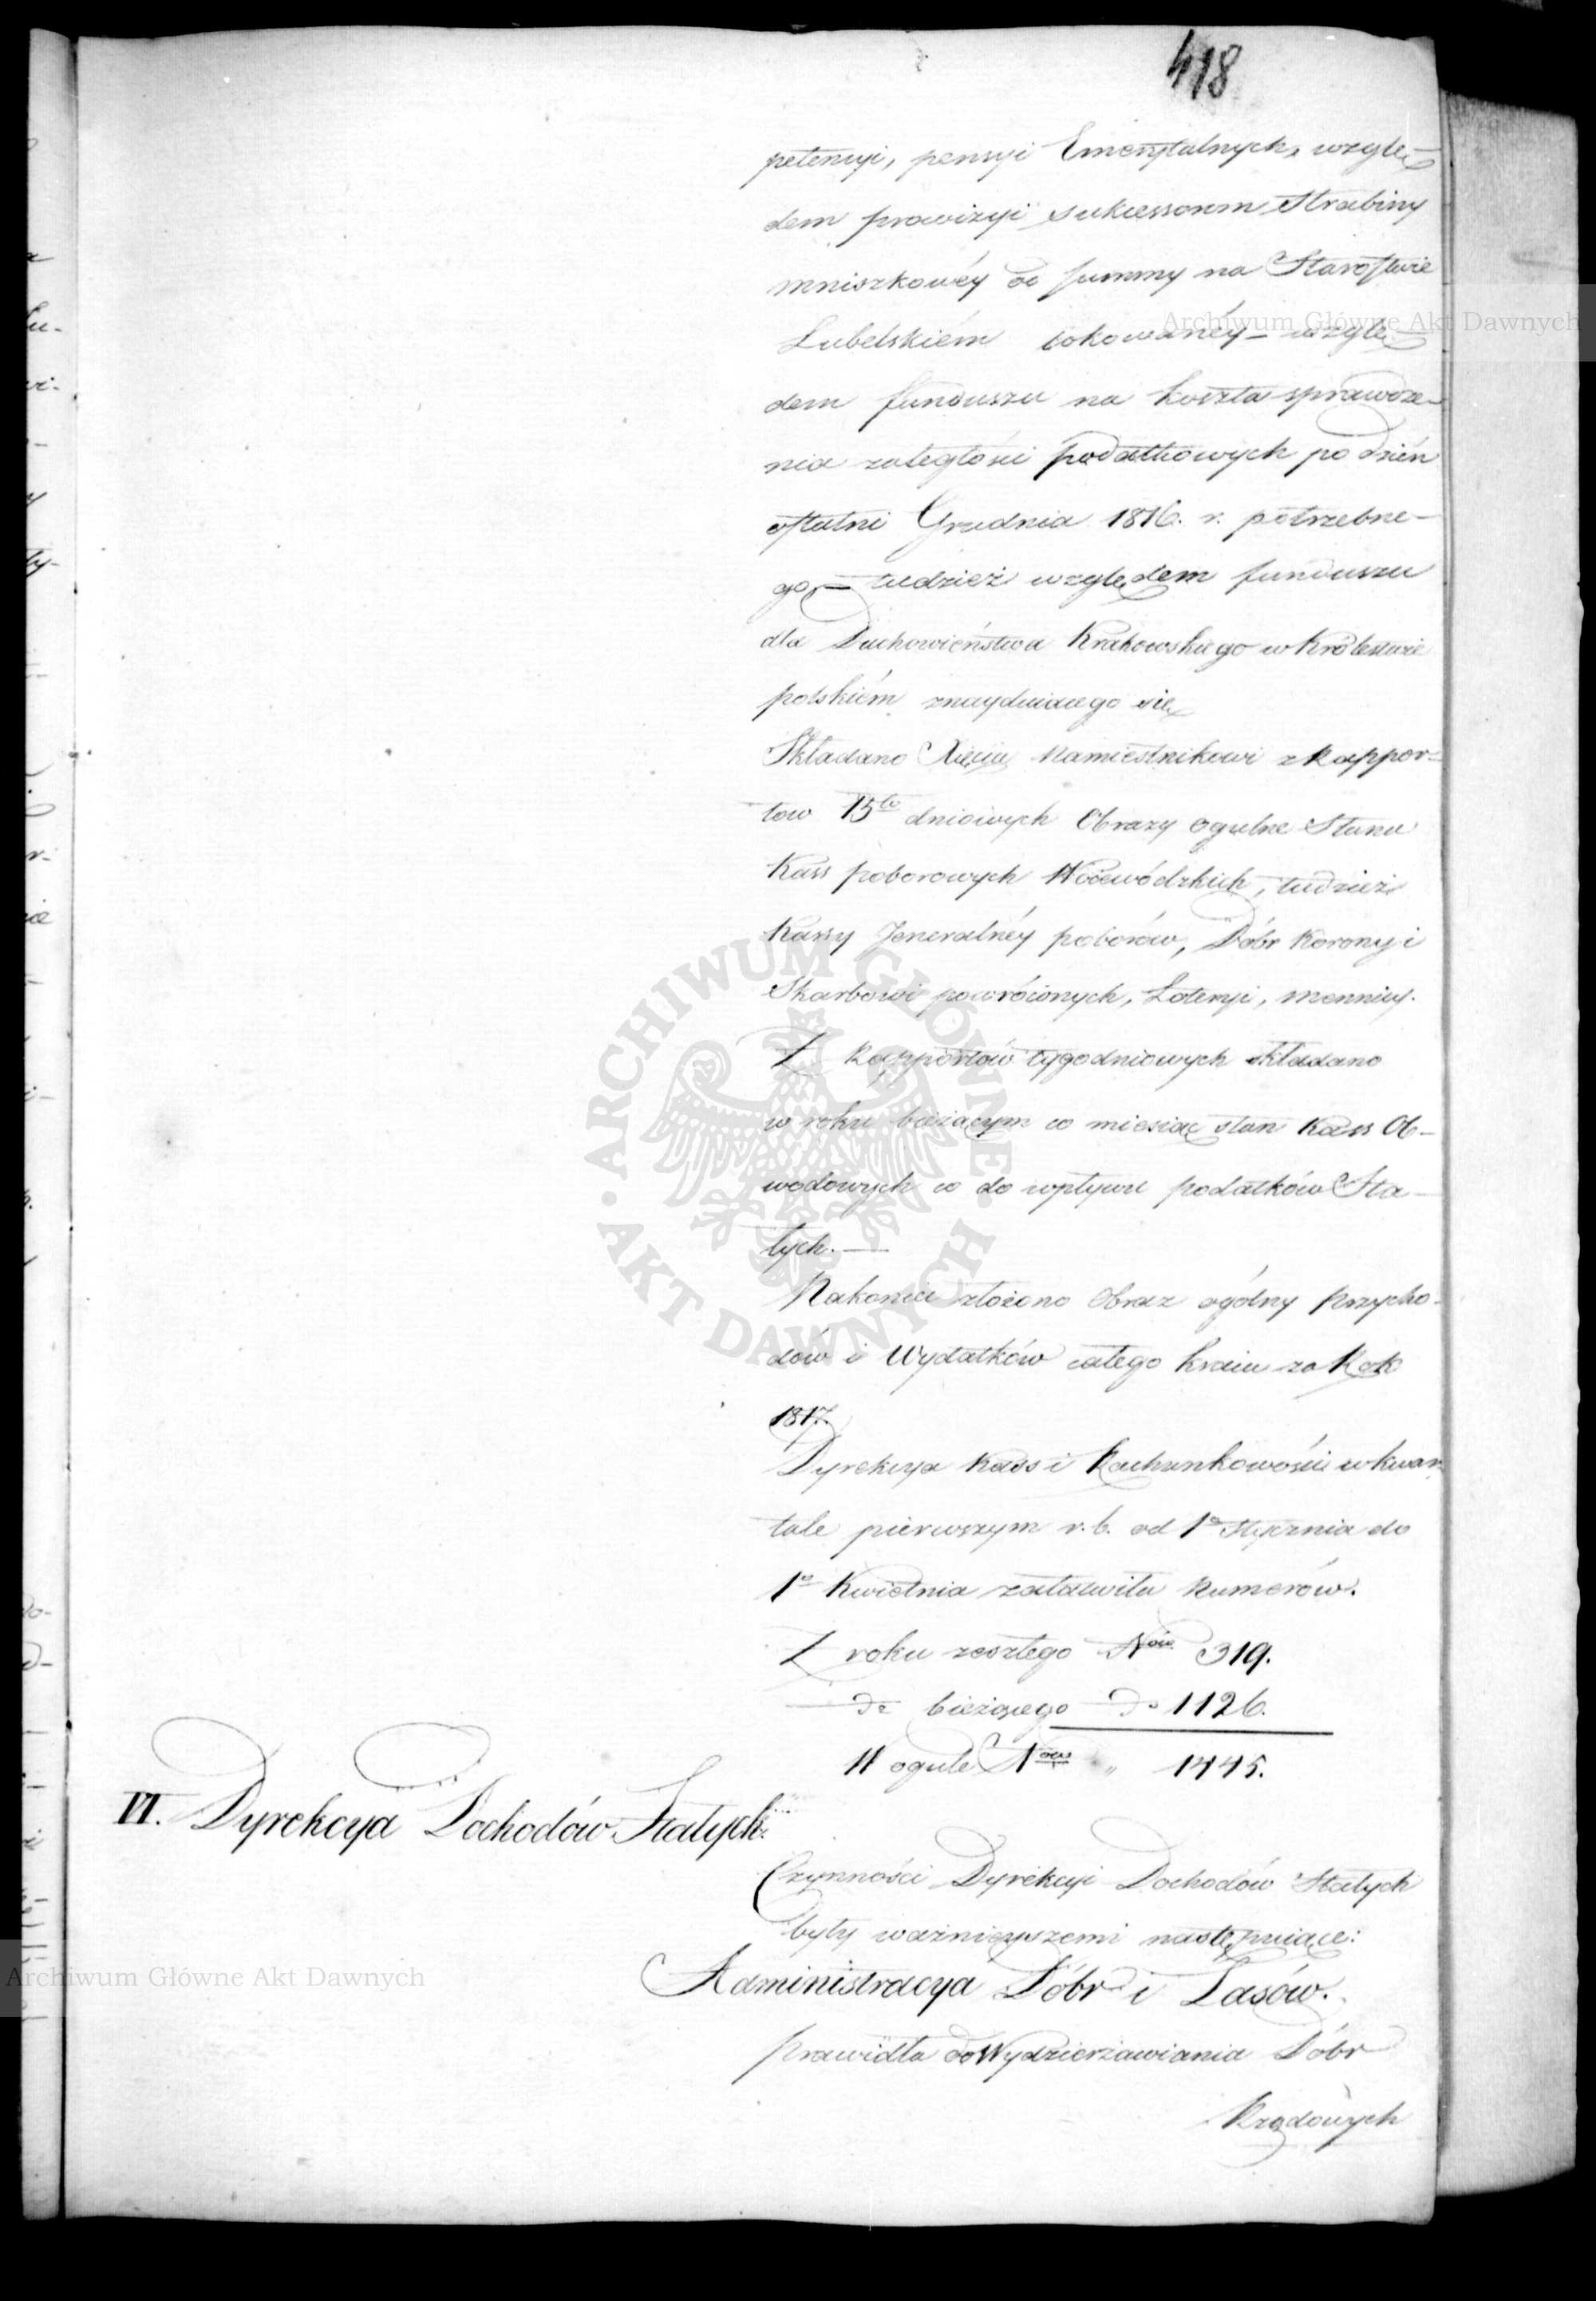 418
petencyi, pensyi Emerytalnych, wzglę-
dem prowizyi sukcessorom Hrabiny
mniszkowéy od summy na Starostwie
Lubelskiém lokowanéy – wzglę-
dem funduszu na koszta sprawdze-
nia zaległości podatkowych po dzień
ostatni Grudnia 1816. r. potrzebne-
go, – tudzież względem funduszu
dla Duchowieństwa Krakowskiego w Królestwie
polskiém znayduiącego się
Składano Xięciu Namiestnikowi z Rappor-
tow 15to dniowych Obrazy ogulne Stanu
Kass poborowych Woiewódzkich, tudzież
Kassy Jeneralnéy poborów, Dóbr Korony i
Skarbowi powróconych, Loteryi, mennicy.
Z Rapportów tygodniowych składano
w roku bieżącym co miesiąc stan Kass Ob-
wodowych co do wpływu podatków Sta-
łych. —
Nakoniec złożono Obraz ogólny Przycho-
dów i Wydatków całego kraiu za Rok
1817.
Dyrekcya Kass i Rachunkowości w kwar-
tale pierwszym r. b. od 1o Stycznia do
1o Kwietnia załatwiła Numerów.
Z roku zeszłego Nów 319.
— do bieżącego — do 1126.
W ogule Nów „ 1445.
VI. Dyrekcya Dochodów Stałych.
Czynności Dyrekcyi Dochodów Stałych
były ważnieyszemi następuiące:
Administracya Dóbr i Lasów.
Prawidła do Wydzierżawiania Dóbr
Rządowych
Archiwum Główne Akt Dawnych
Archiwum Główne Akt Dawnych
ARCHIWUM GŁÓWNE · AKT DAWNYCH ·